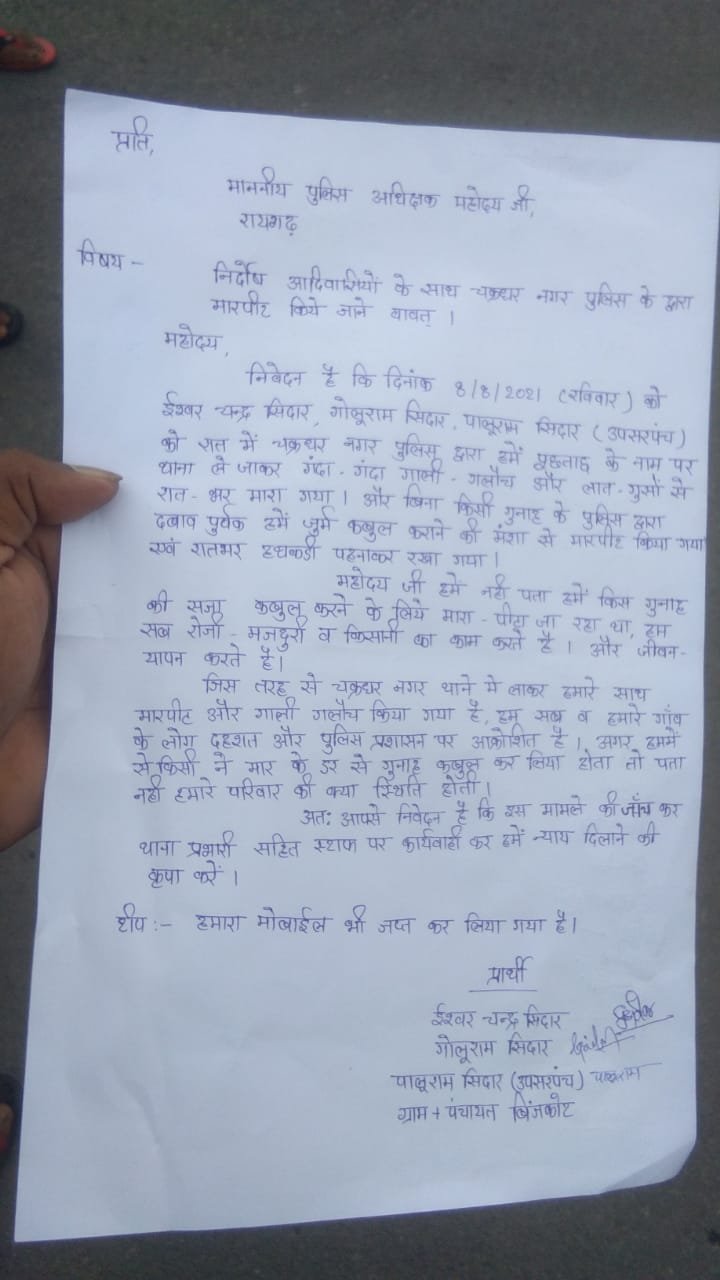 प्रति,
माननीय पुलिस अधिक्षक महोदय जी,
रायगढ़
विषय - निर्दोष आदिवासियों के साथ चक्रधर नगर पुलिस के द्वारा
मारपीट किये जाने बावत् ।
महोदय,
निवेदन है कि दिनांक 8/8/2021 (रविवार) को
ईश्वर चन्द्र सिदार, गोलूराम सिदार, पालूराम सिदार (उपसरपंच)
को रात में चक्रधर नगर पुलिस द्वारा हमें पुछताछ के नाम पर
थाना ले जाकर गंदा-गंदा गाली-गलौच और लात-गुसों से
रात-भर मारा गया। और बिना किसी गुनाह के पुलिस द्वारा
दबाव पुर्वक हमें जुर्म कबुल कराने की मंशा से मारपीट किया गया
एवं रातभर हथकडी पहनाकर रखा गया।
महोदय जी हमे नही पता हमें किस गुनाह
की सजा कबुल करने के लिये मारा-पीटा जा रहा था, हम
सब रोजी-मजदुरी व किसानी का काम करते है। और जीवन-
यापन करते है।
जिस तरह से चक्रधर नगर थाने मे लाकर हमारे साथ
मारपीट और गाली गलौच किया गया है, हम सब व हमारे गाँव
के लोग दहशत और पुलिस प्रशासन पर आक्रोशित है। अगर हममें
से किसी ने मार के डर से गुनाह कबुल कर लिया होता तो पता
नही हमारे परिवार की क्या स्थिति होती।
अतः आपसे निवेदन है कि इस मामले की जाँच कर
थाना प्रभारी सहित स्टाफ पर कार्यवाही कर हमें न्याय दिलाने की
कृपा करें ।
टीप :- हमारा मोबाईल भी जप्त कर लिया गया है।
प्रार्थी
ईश्वर चन्द्र सिदार
गोलूराम सिदार
पालूराम सिदार (उपसरपंच) पालूराम
ग्राम + पंचायत बिंजकोट